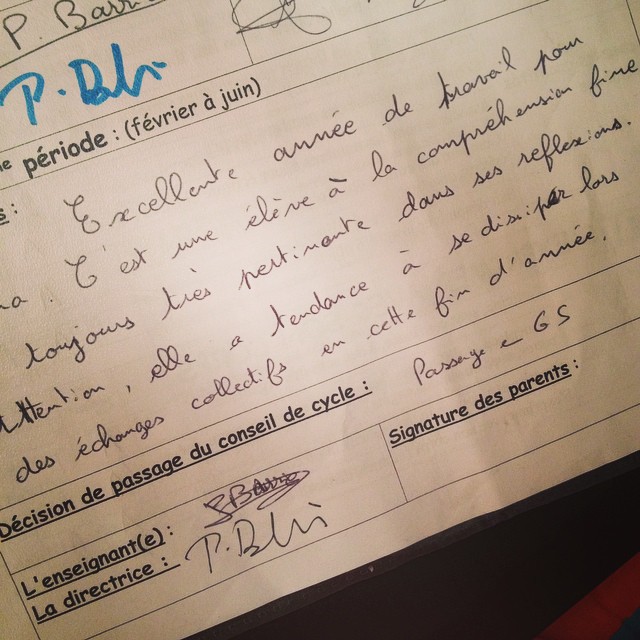 P. Barri
P. Bl
me période : (février à juin)
s : Excellente année de travail pour
na. C'est une élève à la compréhension fine
toujours très pertinente dans ses réflexions.
Attention, elle a tendance à se dissiper lors
des échanges collectifs en cette fin d'année.
Décision de passage du conseil de cycle : Passage en GS
L'enseignant(e) :
Signature des parents :
La directrice :